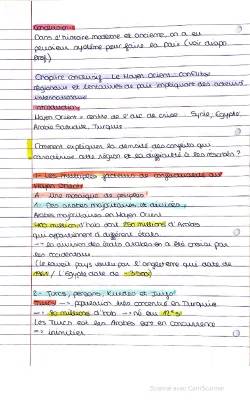 Conclusion :
Dans l'histoire moderne et ancienne, on a eu
plusieurs système pour faire la Paix (voir diapo
prof)
Chapitre conclusif : Le Moyen Orient : conflits
régionaux et tentatives de paix impliquant des acteurs
internationaux
Introduction
Moyen Orient = centre de l'arc de crise : Syrie, Egypte
Arabie Saoudite, Turquie
Comment expliquer la densité des conflits qui
caractérise cette région et la difficulté à les résoudre ?
1 - Les multiples facteurs de
Moyen Orient
A - Une mosaïque de peuples
1 - Des arabes majoritaires et divisés
Arabes majoritaires en Moyen Orient
400 millions d'hab dont 250 millions d'Arabes
qui appartiennent à différent états
→ la division des états arabes en a été creusé par
les occidentaux
2 - Turcs, persans, Kurdes et Juifs
Turcs → population très concentré en Turquie
→ 80 millions d'hab
Les Turcs et les Arabes sont en concurrence
Scanné avec CamScanner